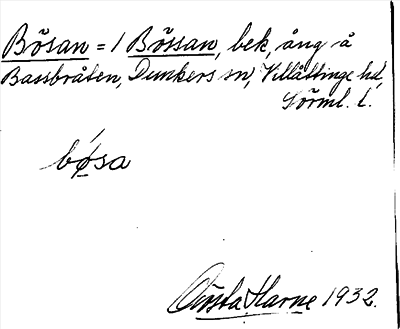 Bösan = / Bössan, bek, äng å
Bassbråten, Dunkers sn, Villåttinge hd,
Sörml. l.
bǿsa
Gösta Harne 1932.